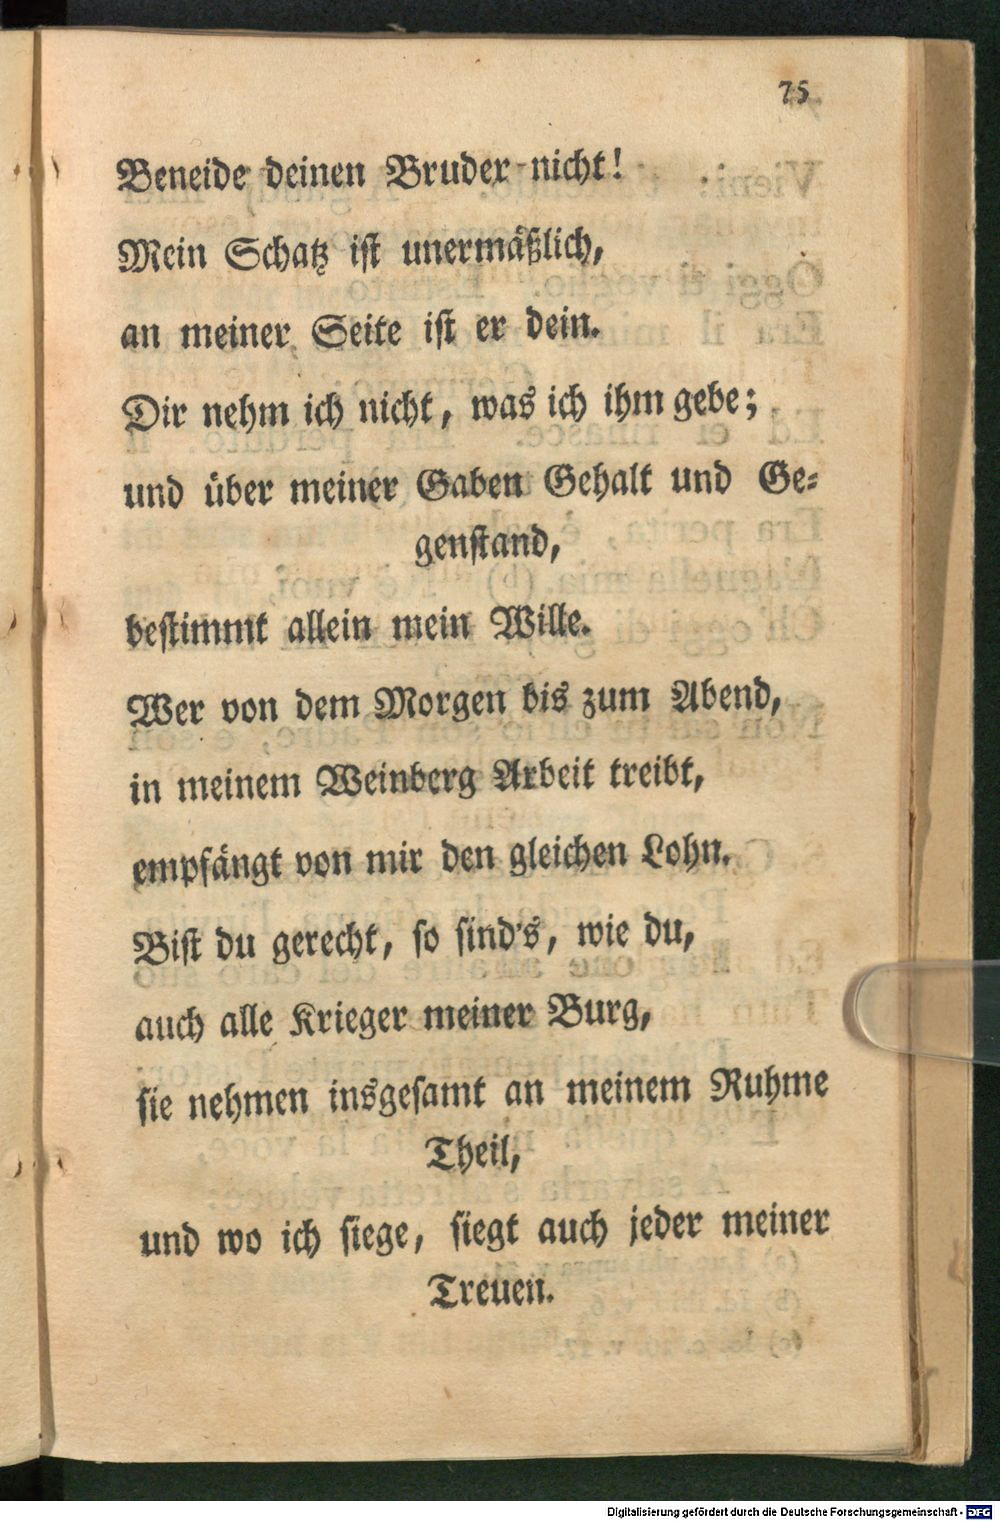 75
Beneide deinen Bruder nicht!
Mein Schatz ist unermäßlich,
an meiner Seite ist er dein.
Dir nehm ich nicht, was ich ihm gebe;
und über meiner Gaben Gehalt und Ge-
genstand,
bestimmt allein mein Wille.
Wer von dem Morgen bis zum Abend,
in meinem Weinberg Arbeit treibt,
empfängt von mir den gleichen Lohn.
Bist du gerecht, so sind's, wie du,
auch alle Krieger meiner Burg,
sie nehmen insgesamt an meinem Ruhme
Theil,
und wo ich siege, siegt auch jeder meiner
Treuen.
Digitalisierung gefördert durch die Deutsche Forschungsgemeinschaft - DFG